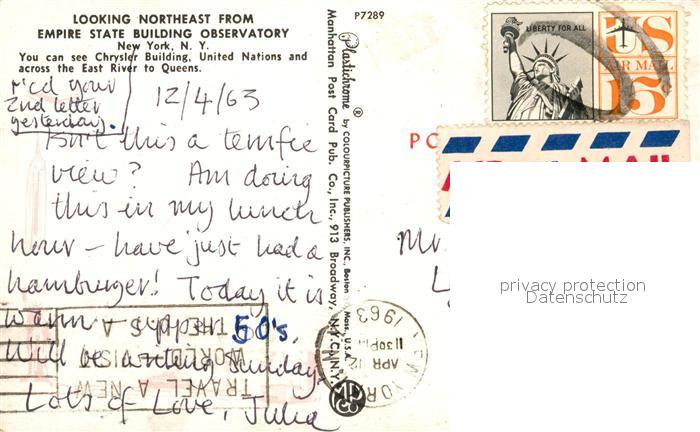 LOOKING NORTHEAST FROM
EMPIRE STATE BUILDING OBSERVATORY
New York, N. Y.
You can see Chrysler Building, United Nations and
across the East River to Queens.
rec'd your
2nd letter
yesterday.
12/4/63
Isn't this a terrific
view? Am doing
this in my lunch
hour - have just had a
hamburger! Today it is
warm - upper 50's.
Will be writing Sunday.
Lots of Love, Julia
TRAVEL A NEW
WORLD IS
THERE A
P7289
Plastichrome ® by COLOURPICTURE PUBLISHERS, INC., Boston, Mass., U.S.A.
Manhattan Post Card Pub. Co., Inc., 913 Broadway, N.Y.C., N.Y.
LIBERTY FOR ALL
US
AIR MAIL
15c
PO
MAIL
YORK
APR 12
11 30 PM
1963
privacy protection
Datenschutz